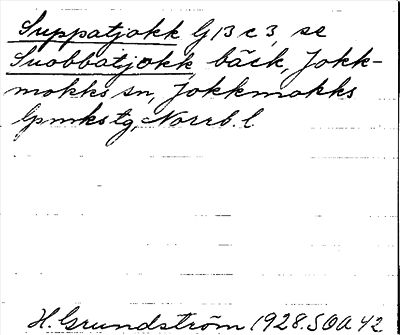 Suppatjokk G 13 c 3, se
Suobbatjåkk, bäck, Jokk-
mokks sn, Jokkmokks
lpmkstg, Norrb. l.
H. Grundström 1928. SOA 42